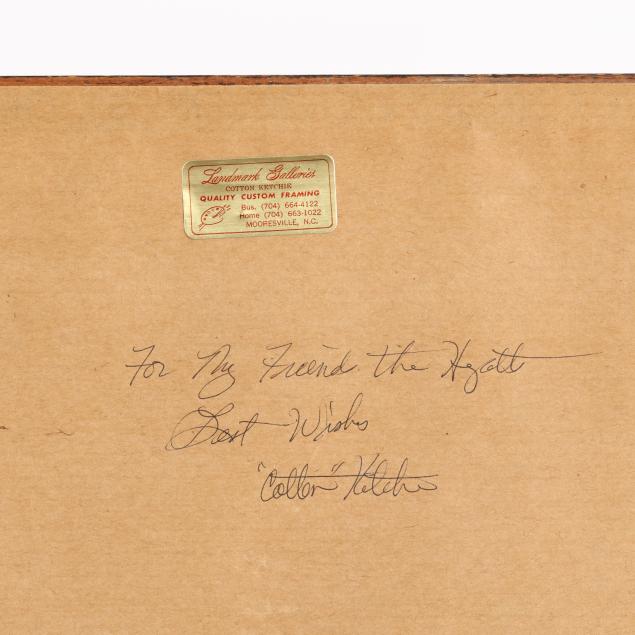 Landmark Galleries
COTTON KETCHIE
QUALITY CUSTOM FRAMING
Bus. (704) 664-4122
Home (704) 663-1022
MOORESVILLE, N.C.
For My Friend the Hyatt
Best Wishes
"Cotton" Ketchie